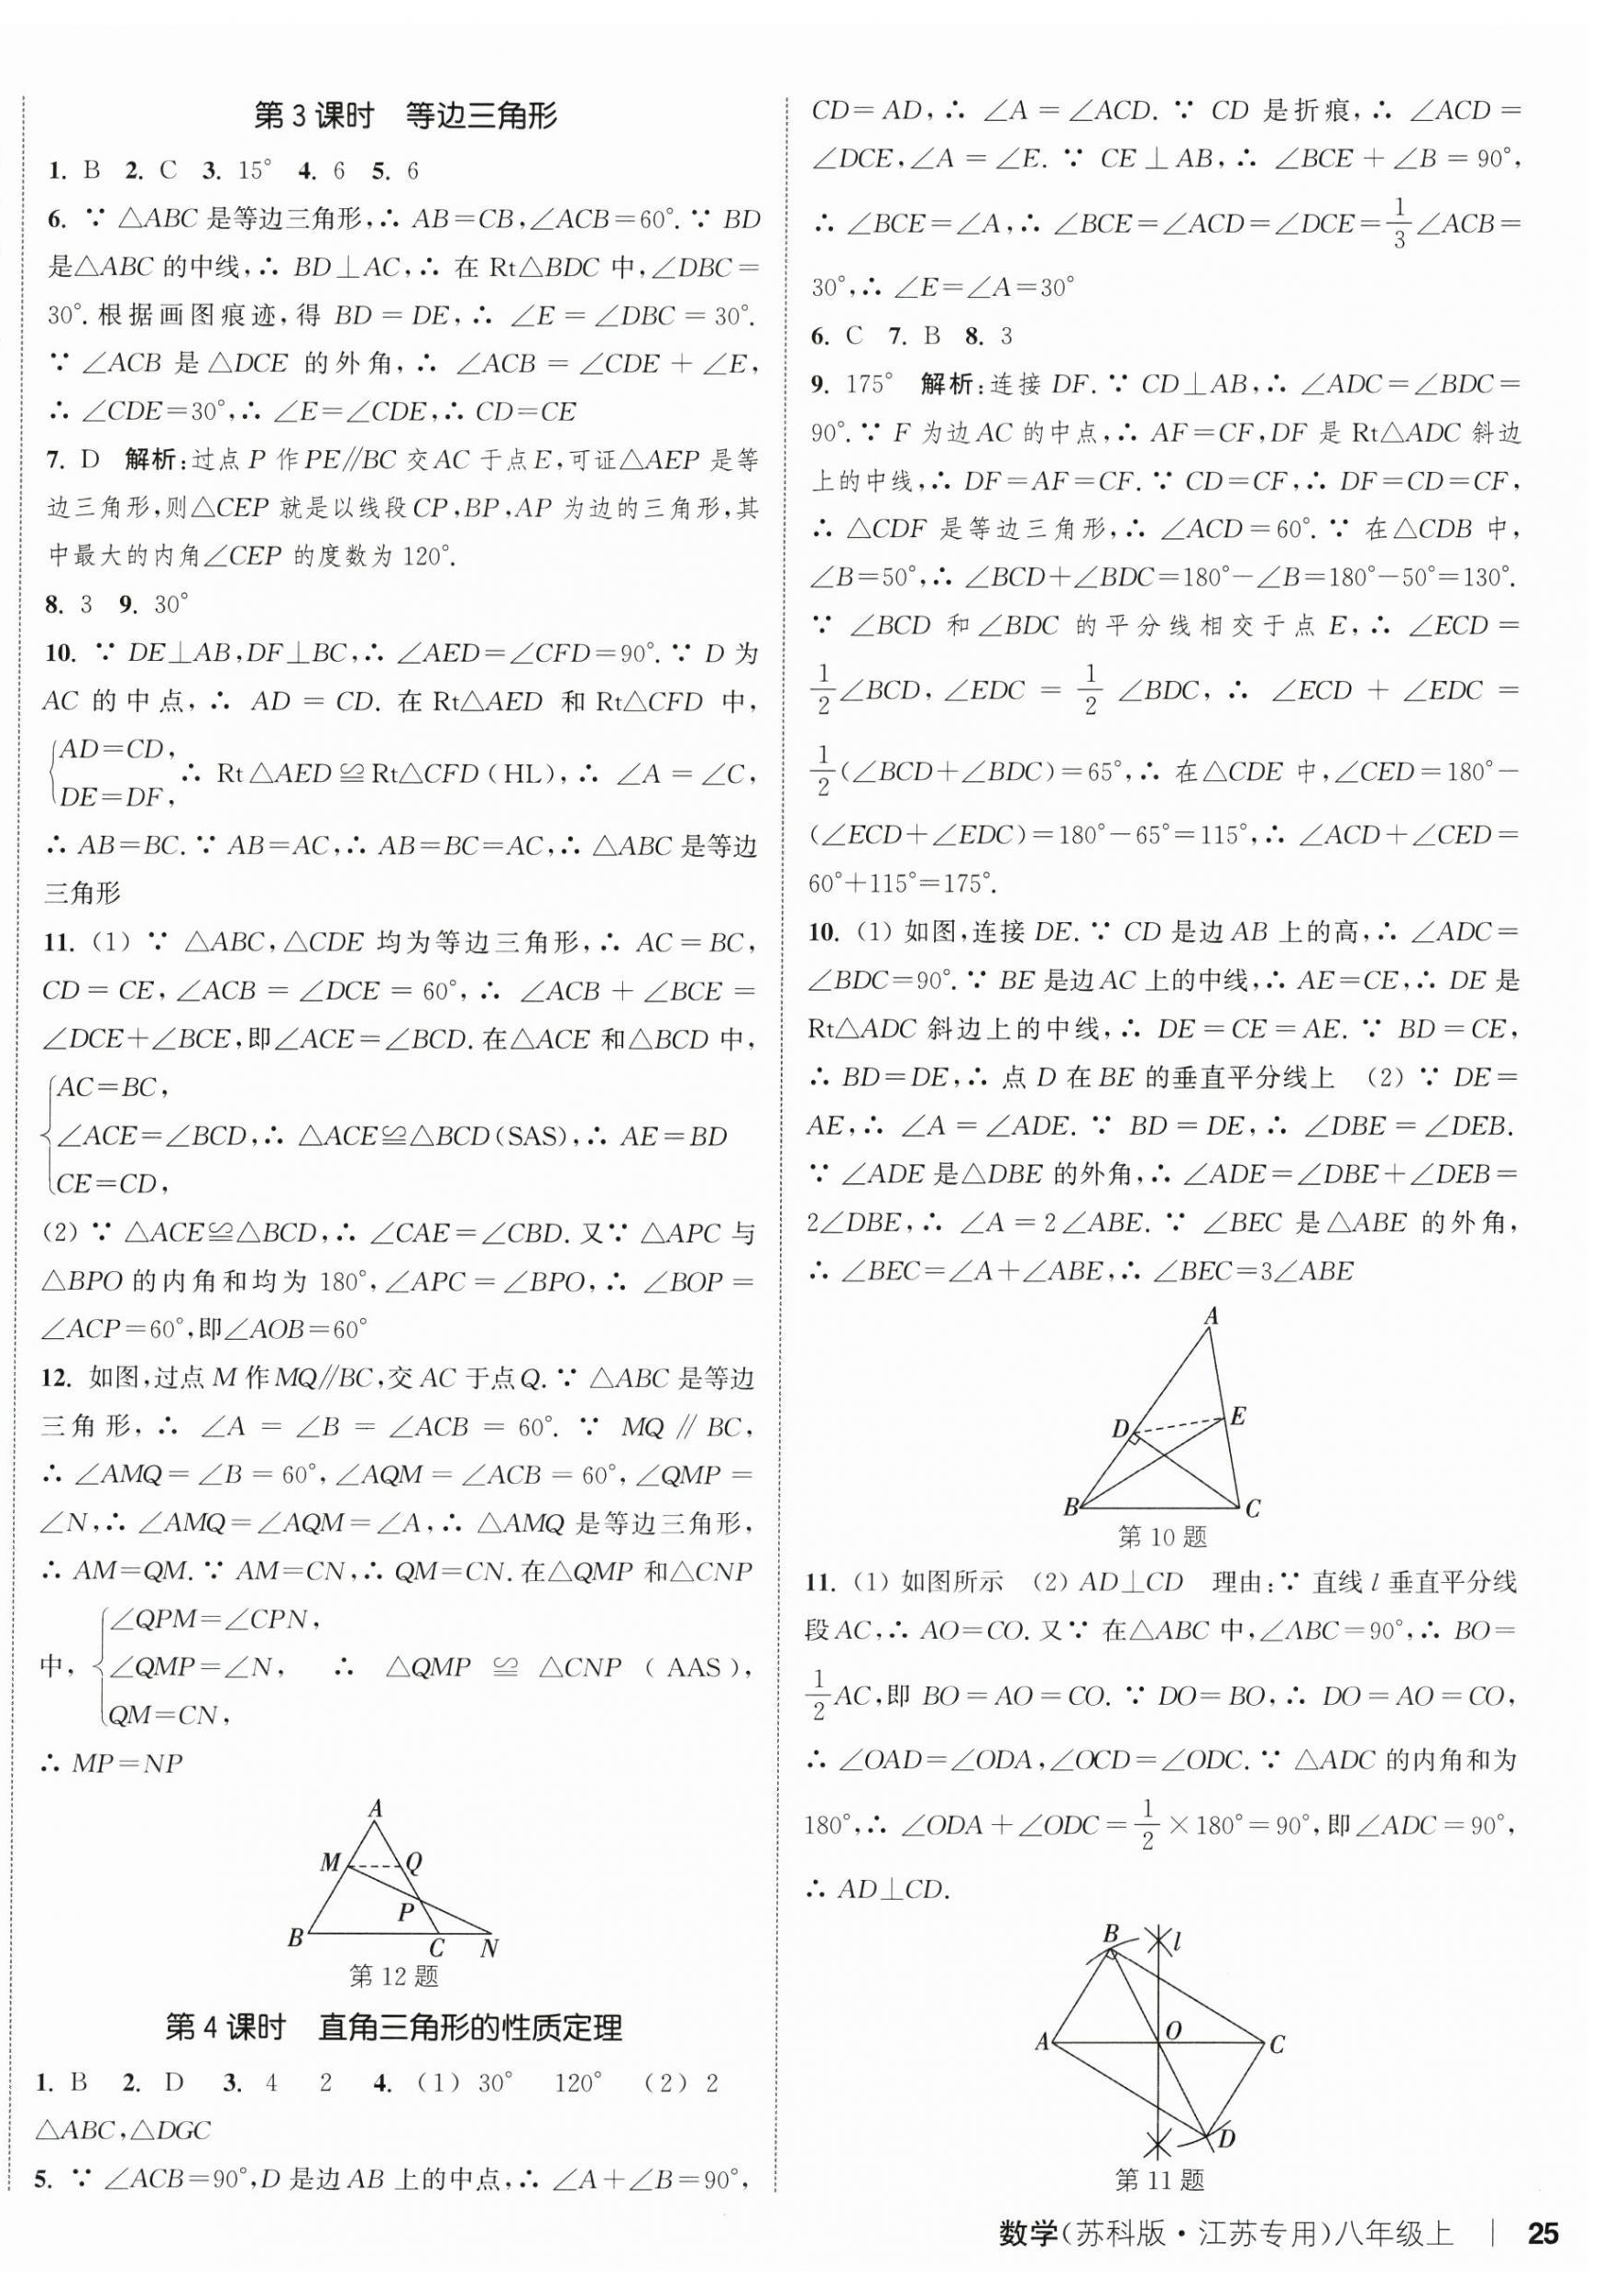 第3课时　等边三角形
1. B　2. C　3. 15°　4. 6　5. 6
6. ∵ △ABC 是等边三角形,∴ AB=CB,∠ACB=60°. ∵ BD
是△ABC 的中线,∴ BD⊥AC,∴ 在 Rt△BDC 中,∠DBC=
30°. 根据画图痕迹,得 BD=DE,∴ ∠E=∠DBC=30°.
∵ ∠ACB 是△DCE 的外角,∴ ∠ACB=∠CDE+∠E,
∴ ∠CDE=30°,∴ ∠E=∠CDE,∴ CD=CE
7. D　解析:过点 P 作 PE∥BC 交 AC 于点 E,可证△AEP 是等
边三角形,则△CEP 就是以线段 CP,BP,AP 为边的三角形,其
中最大的内角∠CEP 的度数为 120°.
8. 3　9. 30°
10. ∵ DE⊥AB,DF⊥BC,∴ ∠AED=∠CFD=90°. ∵ D 为
AC 的中点,∴ AD=CD. 在 Rt△AED 和 Rt△CFD 中,
{AD=CD,
DE=DF, ∴ Rt△AED≌Rt△CFD(HL),∴ ∠A=∠C,
∴ AB=BC. ∵ AB=AC,∴ AB=BC=AC,∴ △ABC 是等边
三角形
11. (1) ∵ △ABC,△CDE 均为等边三角形,∴ AC=BC,
CD=CE,∠ACB=∠DCE=60°,∴ ∠ACB+∠BCE=
∠DCE+∠BCE,即∠ACE=∠BCD. 在△ACE 和△BCD 中,
{AC=BC,
∠ACE=∠BCD,∴ △ACE≌△BCD(SAS),∴ AE=BD
CE=CD,
(2) ∵ △ACE≌△BCD,∴ ∠CAE=∠CBD. 又∵ △APC 与
△BPO 的内角和均为 180°,∠APC=∠BPO,∴ ∠BOP=
∠ACP=60°,即∠AOB=60°
12. 如图,过点 M 作 MQ∥BC,交 AC 于点 Q. ∵ △ABC 是等边
三角形,∴ ∠A=∠B=∠ACB=60°. ∵ MQ∥BC,
∴ ∠AMQ=∠B=60°,∠AQM=∠ACB=60°,∠QMP=
∠N,∴ ∠AMQ=∠AQM=∠A,∴ △AMQ 是等边三角形,
∴ AM=QM. ∵ AM=CN,∴ QM=CN. 在△QMP 和△CNP
{∠QPM=∠CPN,
中, ∠QMP=∠N,　∴ △QMP≌△CNP(AAS),
QM=CN,
∴ MP=NP
A
M　Q
P
B　C　N
第12题
第4课时　直角三角形的性质定理
1. B　2. D　3. 4　2　4. (1) 30°　120°　(2) 2
△ABC,△DGC
5. ∵ ∠ACB=90°,D 是边 AB 上的中点,∴ ∠A+∠B=90°,
CD=AD,∴ ∠A=∠ACD. ∵ CD 是折痕,∴ ∠ACD=
∠DCE,∠A=∠E. ∵ CE⊥AB,∴ ∠BCE+∠B=90°,
∴ ∠BCE=∠A,∴ ∠BCE=∠ACD=∠DCE=1/3∠ACB=
30°,∴ ∠E=∠A=30°
6. C　7. B　8. 3
9. 175°　解析:连接 DF. ∵ CD⊥AB,∴ ∠ADC=∠BDC=
90°. ∵ F 为边 AC 的中点,∴ AF=CF,DF 是 Rt△ADC 斜边
上的中线,∴ DF=AF=CF. ∵ CD=CF,∴ DF=CD=CF,
∴ △CDF 是等边三角形,∴ ∠ACD=60°. ∵ 在△CDB 中,
∠B=50°,∴ ∠BCD+∠BDC=180°-∠B=180°-50°=130°.
∵ ∠BCD 和∠BDC 的平分线相交于点 E,∴ ∠ECD=
1/2∠BCD,∠EDC=1/2∠BDC,∴ ∠ECD+∠EDC=
1/2(∠BCD+∠BDC)=65°,∴ 在△CDE 中,∠CED=180°-
(∠ECD+∠EDC)=180°-65°=115°,∴ ∠ACD+∠CED=
60°+115°=175°.
10. (1) 如图,连接 DE. ∵ CD 是边 AB 上的高,∴ ∠ADC=
∠BDC=90°. ∵ BE 是边 AC 上的中线,∴ AE=CE,∴ DE 是
Rt△ADC 斜边上的中线,∴ DE=CE=AE. ∵ BD=CE,
∴ BD=DE,∴ 点 D 在 BE 的垂直平分线上　(2) ∵ DE=
AE,∴ ∠A=∠ADE. ∵ BD=DE,∴ ∠DBE=∠DEB.
∵ ∠ADE 是△DBE 的外角,∴ ∠ADE=∠DBE+∠DEB=
2∠DBE,∴ ∠A=2∠ABE. ∵ ∠BEC 是△ABE 的外角,
∴ ∠BEC=∠A+∠ABE,∴ ∠BEC=3∠ABE
A
D　E
B　C
第10题
11. (1) 如图所示　(2) AD⊥CD　理由:∵ 直线 l 垂直平分线
段 AC,∴ AO=CO. 又∵ 在△ABC 中,∠ABC=90°,∴ BO=
1/2AC,即 BO=AO=CO. ∵ DO=BO,∴ DO=AO=CO,
∴ ∠OAD=∠ODA,∠OCD=∠ODC. ∵ △ADC 的内角和为
180°,∴ ∠ODA+∠ODC=1/2×180°=90°,即∠ADC=90°,
∴ AD⊥CD.
B　l
A　O　C
D
第11题
数学(苏科版·江苏专用)八年级上　|　25